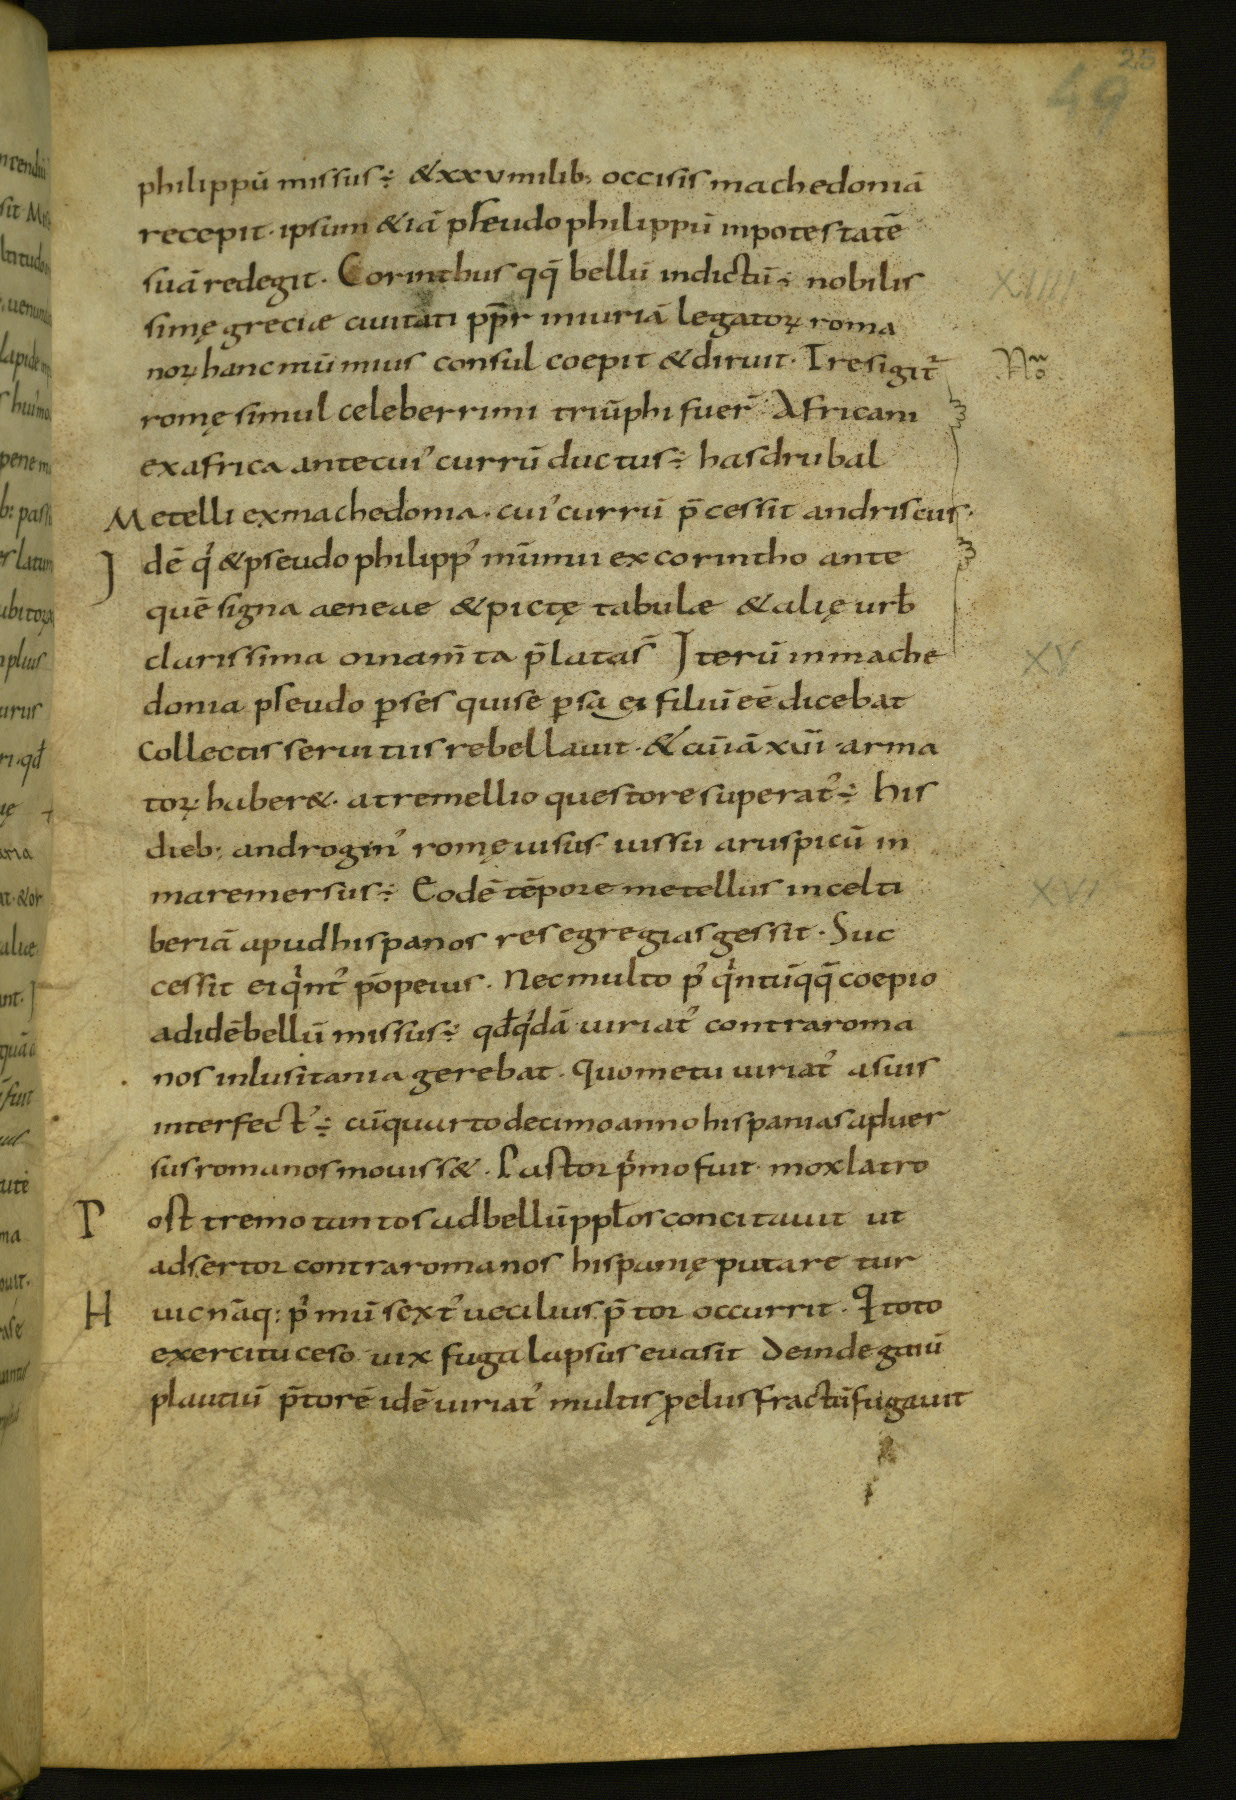 25
49
philippū missus÷ &xxv milib; occisis machedoniā
recepit· ipsum &iā pseudo philippū inpotestatē
suā redegit· Corinthus qq̄ bellū indictū÷ nobilis
XIIII
simę greciae ciuitati pp̄r iniuriā legatoꝝ roma
noꝝ hanc mūmius consul coepit &diruit· Tresigit᷑
No
romę simul celeberrimi triūphi fuer̄· Africani
exafrica antecui᾽ currū ductus÷ hasdrubal
Metelli exmachedonia· cui᾽ currū p̄cessit andriscus·
Idē q᾽ &pseudo philipp᾽ mūmii excorintho ante
quē signa aeneae &pictę tabulae &alię urƀ
clarissima ornam̄ta p̄latas̄ Iterū inmache
XV
donia pseudo ꝑses quise ꝑsaei filiū eē dicebat
collectis seruitiis rebellauit· &cū iā xuī armа
toꝝ haber&· atremellio questore superat᾽÷ his
dieb; androgin᾽ romę uisus· iussu aruspicū in
maremersus÷ Eodē tēpore metellus incelti
XVI
beriā apudhispanos res egregias gessit· Suc
cessit ei qͥnt᾽ pōpeius· Necmulto p᾽ qͥntus̄qq̄ coepio
adidēbellū missus÷ qđqͥdā uiriat᾽ contraroma
nos inlusitania gerebat· Quometu uiriat᾽ asuis
interfect᾽÷ cūquartodecimoannohispaniasaduer
susromanosmouiss&· Pastor pͥmofuit· moxlatro
Postremo tantos adbellūppłosconcitauit ut
adsertor contraromanos hispanię putaretur
Huic nāq: pͥmū sext᾽ uecilius p̄tor occurrit· Qͥ toto
exercitu ceso uix fuga lapsus euasit Deinde gaiū
plautiū p̄torē idē uiriat᾽ multis ꝓeliis fractū fugauit